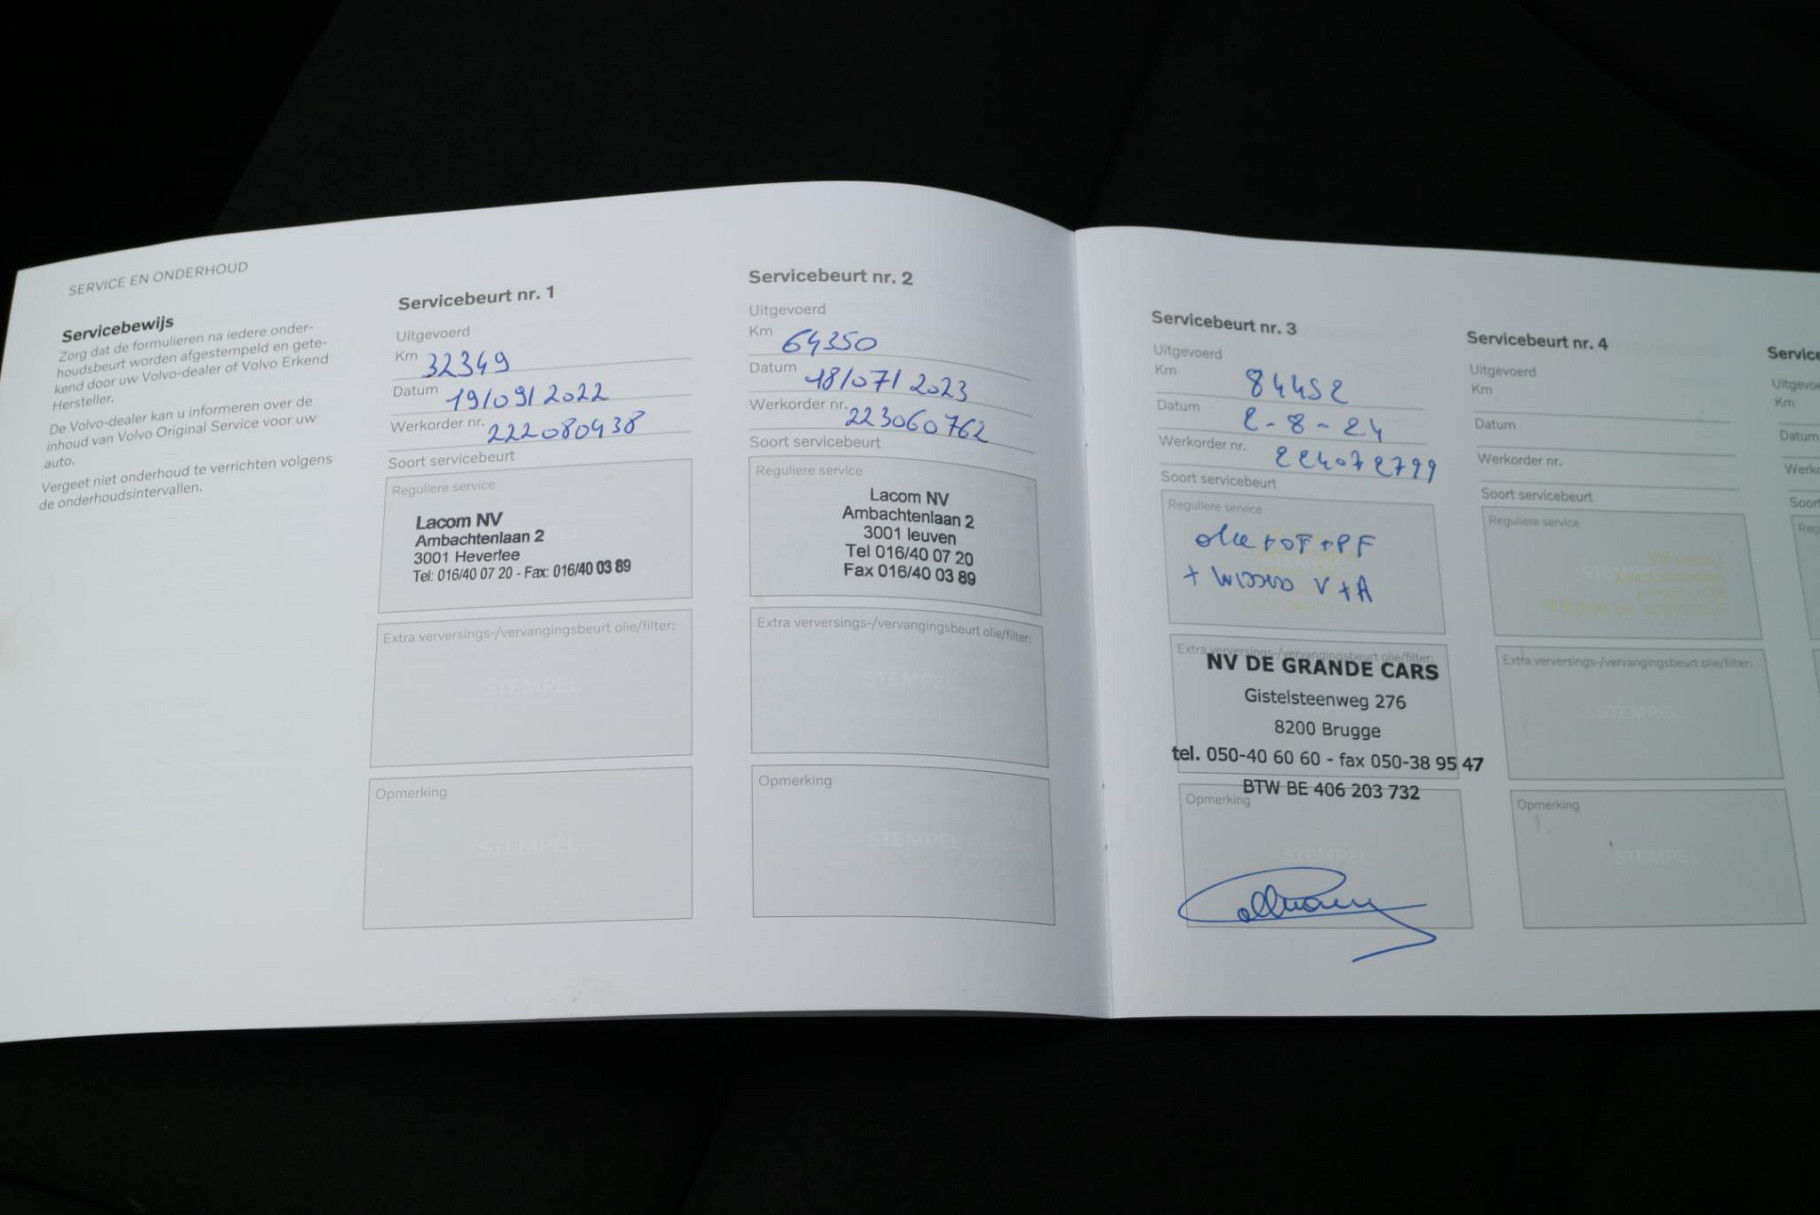 SERVICE EN ONDERHOUD
Servicebewijs
Zorg dat de formulieren na iedere onder-
houdsbeurt worden afgestempeld en gete-
kend door uw Volvo-dealer of Volvo Erkend
Hersteller.
De Volvo-dealer kan u informeren over de
inhoud van Volvo Original Service voor uw
auto.
Vergeet niet onderhoud te verrichten volgens
de onderhoudsintervallen.
Servicebeurt nr. 1
Uitgevoerd
Km 32349
Datum 19/09/2022
Werkorder nr. 222080938
Soort servicebeurt
Reguliere service
Lacom NV
Ambachtenlaan 2
3001 Heverlee
Tel: 016/40 07 20 - Fax: 016/40 03 89
Extra verversings-/vervangingsbeurt olie/filter:
STEMPEL
Opmerking
STEMPEL
Servicebeurt nr. 2
Uitgevoerd
Km 64350
Datum 18/07/2023
Werkorder nr. 223060762
Soort servicebeurt
Reguliere service
Lacom NV
Ambachtenlaan 2
3001 leuven
Tel 016/40 07 20
Fax 016/40 03 89
Extra verversings-/vervangingsbeurt olie/filter:
STEMPEL
Opmerking
STEMPEL
Servicebeurt nr. 3
Uitgevoerd
Km 84452
Datum 2-8-24
Werkorder nr. 224072799
Soort servicebeurt
Reguliere service
olie + OF + PF
+ wissers V+A
Extra verversings-/vervangingsbeurt olie/filter:
NV DE GRANDE CARS
Gistelsteenweg 276
8200 Brugge
tel. 050-40 60 60 - fax 050-38 95 47
BTW BE 406 203 732
Opmerking
STEMPEL
Servicebeurt nr. 4
Uitgevoerd
Km
Datum
Werkorder nr.
Soort servicebeurt
Reguliere service
Extra verversings-/vervangingsbeurt olie/filter:
STEMPEL
Opmerking
STEMPEL
Service
Uitgevoe
Km
Datum
Werko
Soort
Reg